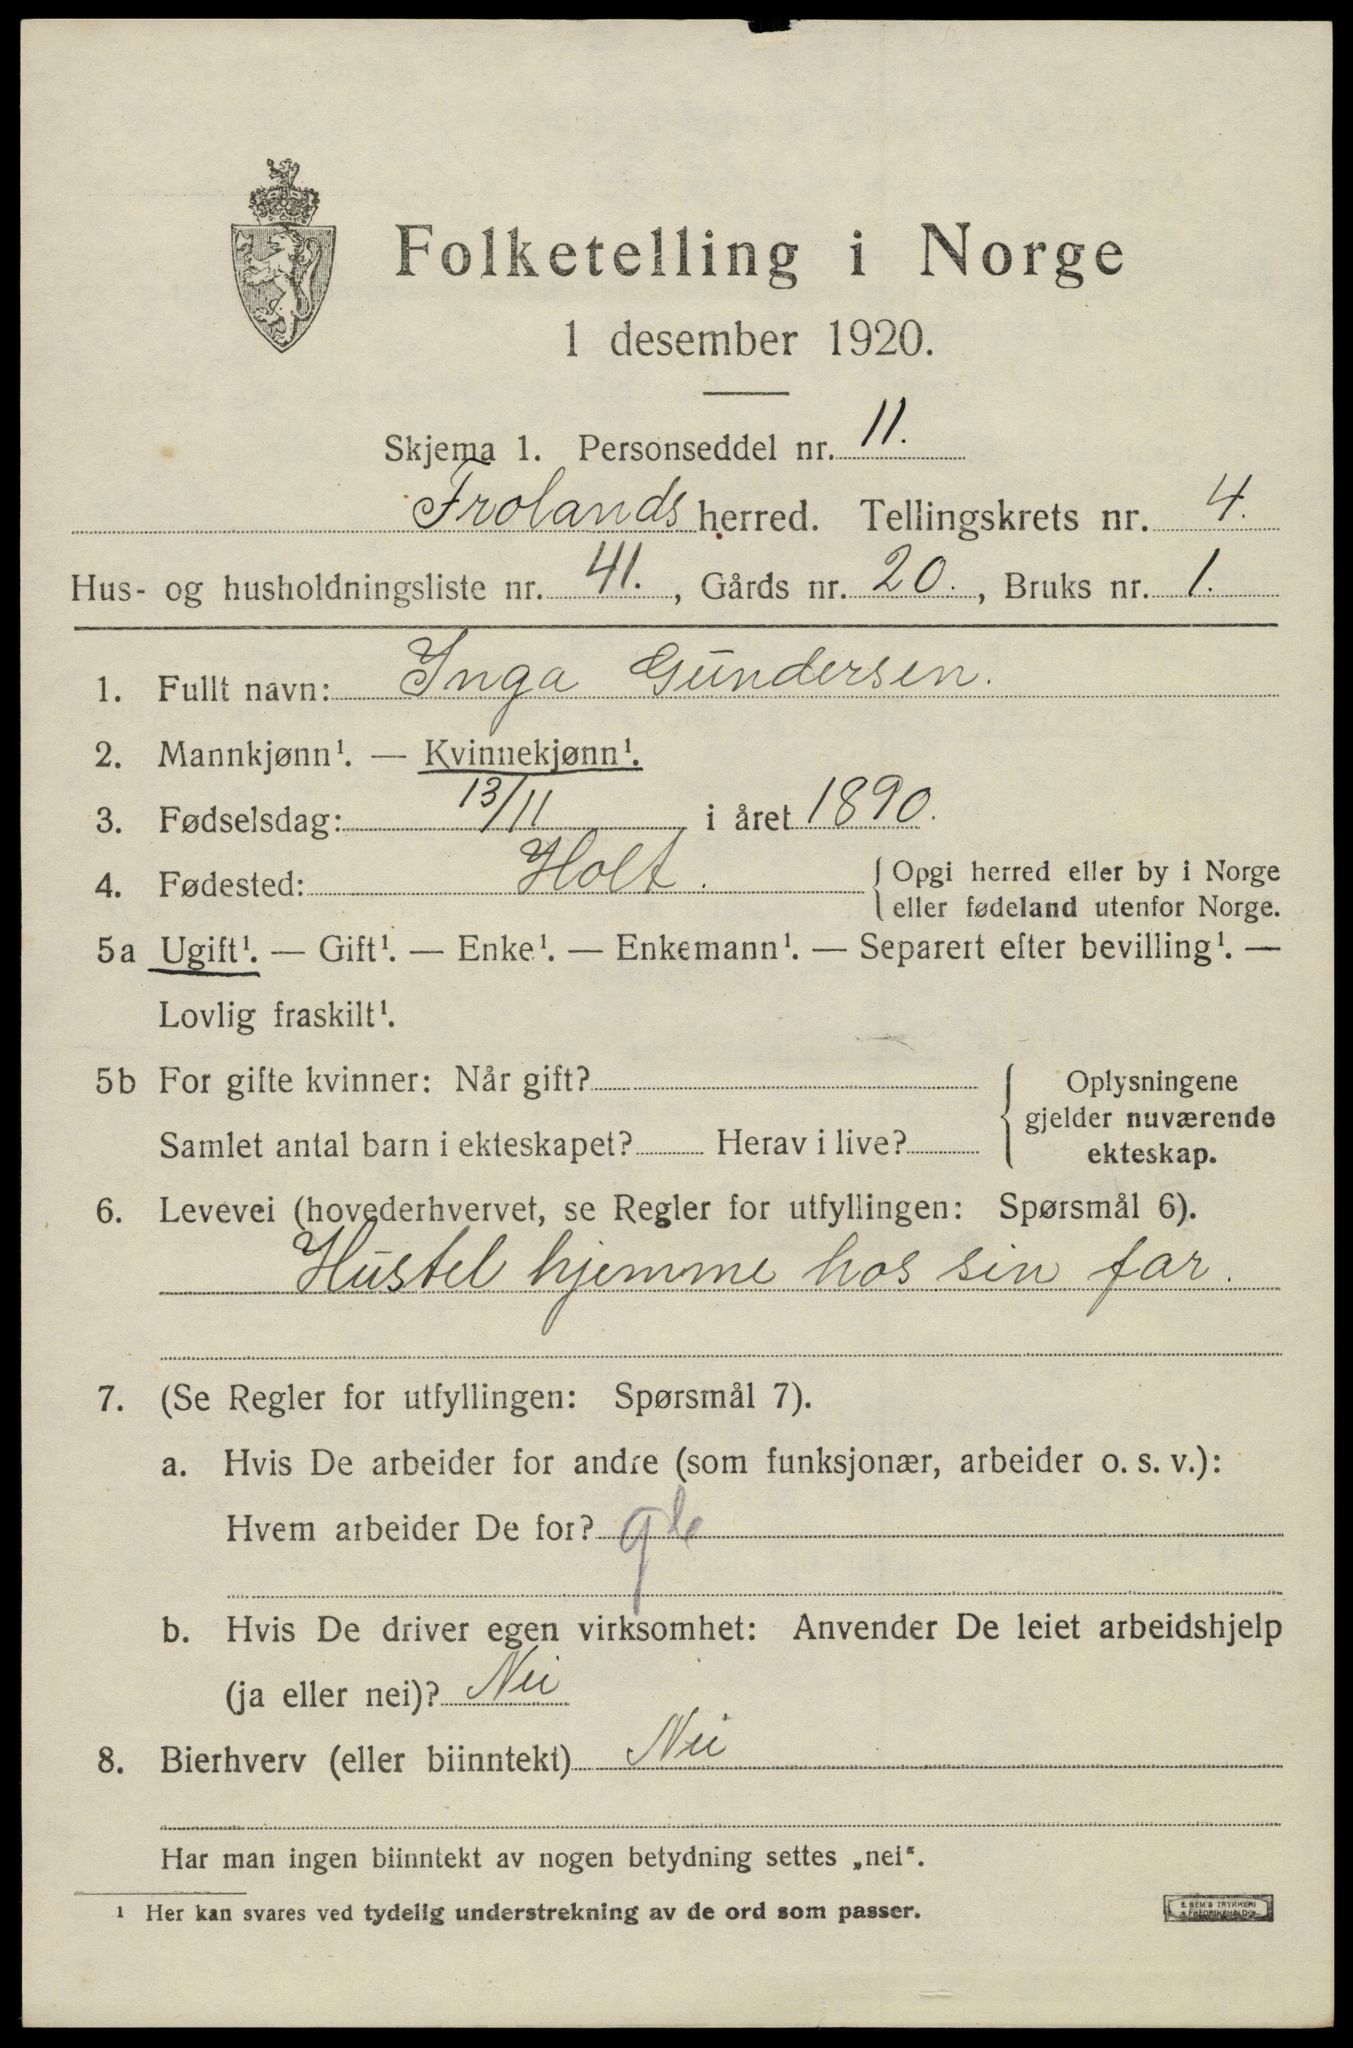 Folketelling i Norge
1 desember 1920.
Skjema 1. Personseddel nr. 11.
Frolands herred. Tellingskrets nr. 4.
Hus- og husholdningsliste nr. 41., Gårds nr. 20., Bruks nr. 1.
1. Fullt navn: Inga Gundersen.
2. Mannkjønn¹. — Kvinnekjønn¹.
3. Fødselsdag: 13/11 i året 1890.
4. Fødested: Holt. { Opgi herred eller by i Norge
eller fødeland utenfor Norge.
5a Ugift¹. — Gift¹. — Enke¹. — Enkemann¹. — Separert efter bevilling¹. —
Lovlig fraskilt¹.
5b For gifte kvinner: Når gift? { Oplysningene
gjelder nuværende
Samlet antal barn i ekteskapet? Herav i live?
ekteskap.
6. Levevei (hovederhvervet, se Regler for utfyllingen: Spørsmål 6).
Hustel hjemme hos sin far.
7. (Se Regler for utfyllingen: Spørsmål 7).
a. Hvis De arbeider for andre (som funksjonær, arbeider o. s. v.):
Hvem arbeider De for?
b. Hvis De driver egen virksomhet: Anvender De leiet arbeidshjelp
(ja eller nei)? Nei
8. Bierhverv (eller biinntekt) Nei
Har man ingen biinntekt av nogen betydning settes „nei".
¹ Her kan svares ved tydelig understrekning av de ord som passer.
E. SEM'S TRYKKERI
FREDRIKSHALD